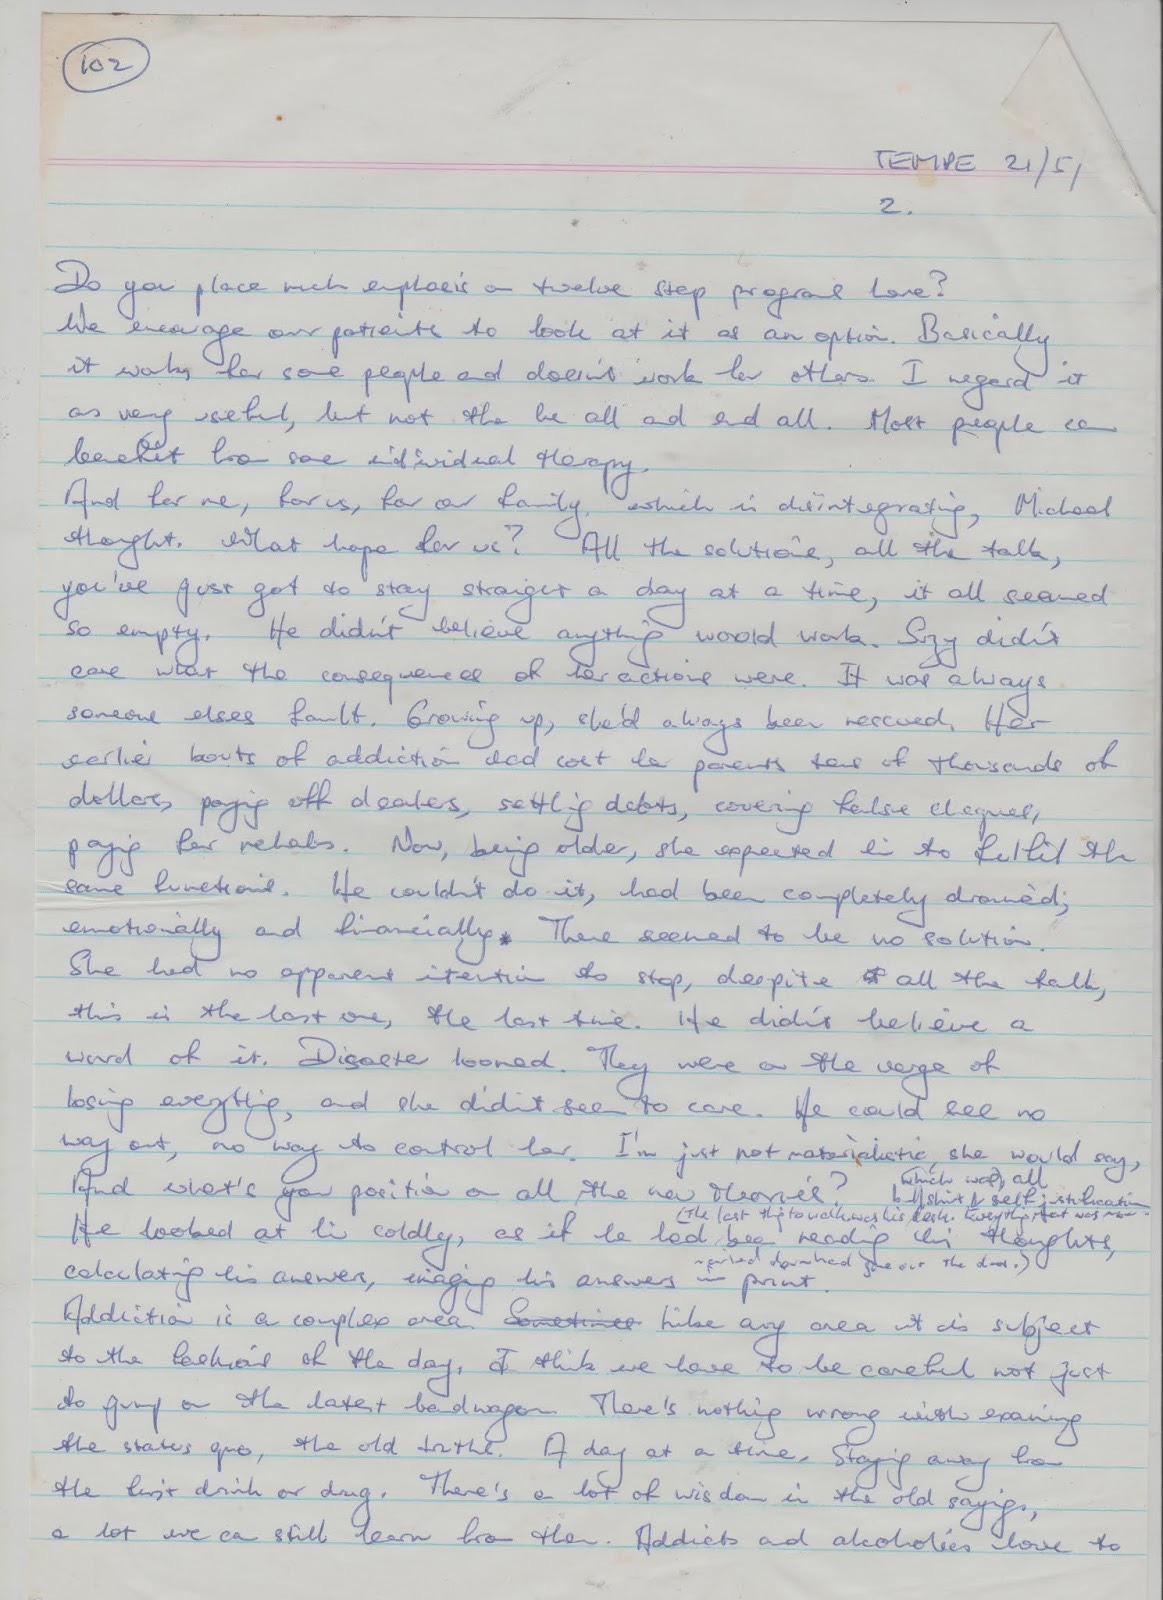 102
TEMPE 21/5/
2.
Do you place much emphasis on twelve step programs here?
We encourage our patients to look at it as an option. Basically
it works for some people and doesn't work for others. I regard it
as very useful, but not the be all and end all. Most people can
benefit from some individual therapy.
And for me, for us, for our family, which is disintegrating, Michael
thought. What hope for us? All the solutions, all the talk,
you've just got to stay straight a day at a time, it all seemed
so empty. He didn't believe anything would work. Suzy didn't
care what the consequences of her actions were. It was always
someone elses fault. Growing up, she'd always been rescued. Her
earlier bouts of addiction had cost her parents tens of thousands of
dollars, paying off dealers, settling debts, covering false cheques,
paying for rehabs. Now, being older, she expected him to fulfil the
same functions. He couldn't do it, had been completely drained;
emotionally and financially. There seemed to be no solution.
She had no apparent intention to stop, despite all the talk,
this is the last one, the last time. He didn't believe a
word of it. Disaster loomed. They were on the verge of
losing everything, and she didn't seem to care. He could see no
way out, no way to control her. I'm just not materialistic, she would say,
which was, all
bullshit & self justification
And what's your position on all the new theories?
(The last thing to walk was his desk. Everything that was not
He looked at him coldly, as if he had been reading his thoughts,
nailed down had gone out the door.)
calculating his answer, imaging his answers in print.
Addiction is a complex area. Sometimes Like any area it is subject
to the fashions of the day. I think we have to be careful not just
to jump on the latest bandwagon. There's nothing wrong with examing
the status quo, the old truths. A day at a time. Staying away from
the first drink or drug. There's a lot of wisdom in the old sayings,
a lot we can still learn from them. Addicts and alcoholics love to